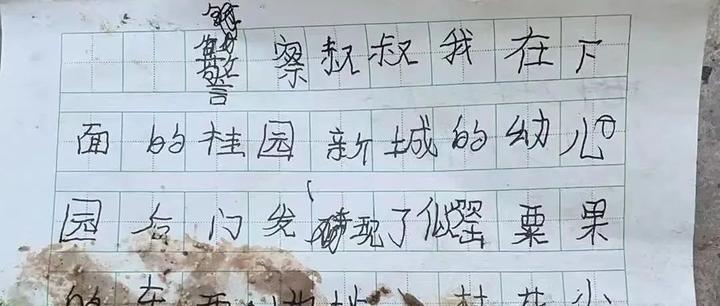 警察叔叔我在下
面的桂园新城的幼儿
园后门发现了似罂粟果
的东西